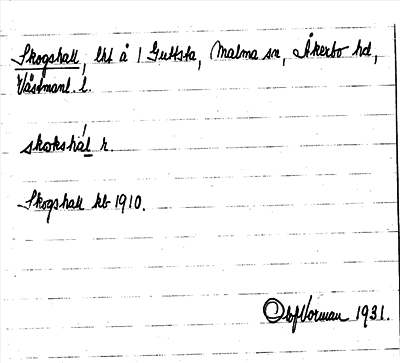 Skogshall, lht å 1 Guttsta, Malma sn, Åkerbo hd,
Västmanl. l.
skɷkshál r.
Skogshall kb 1910.
Olof Norman 1931.